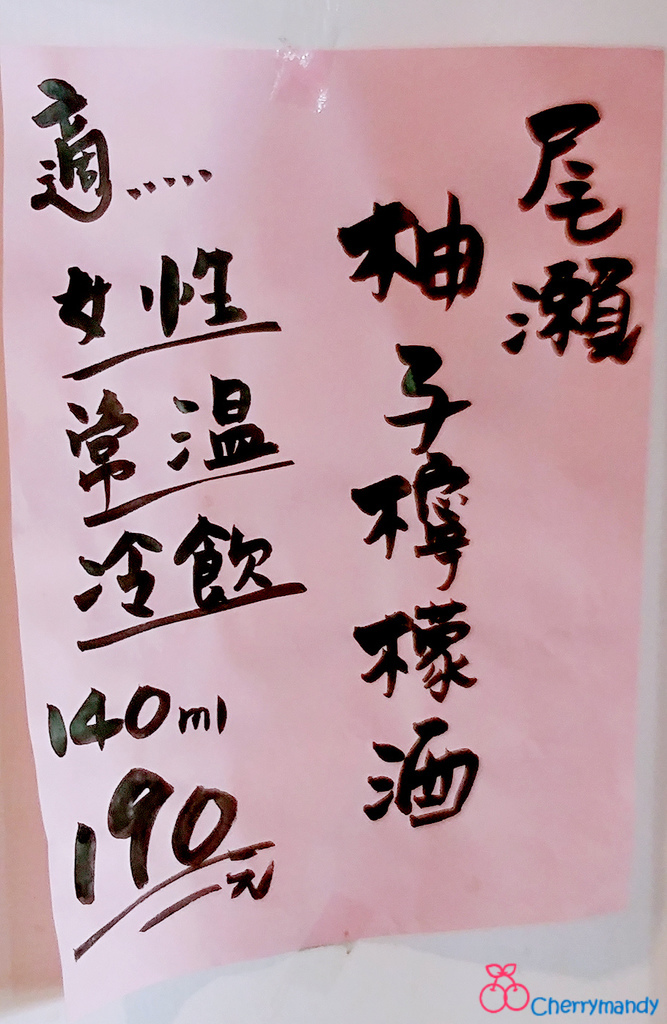 尾瀬
柚子檸檬酒
適.....
女性
常温
冷飲
140ml
190元
Cherrymandy